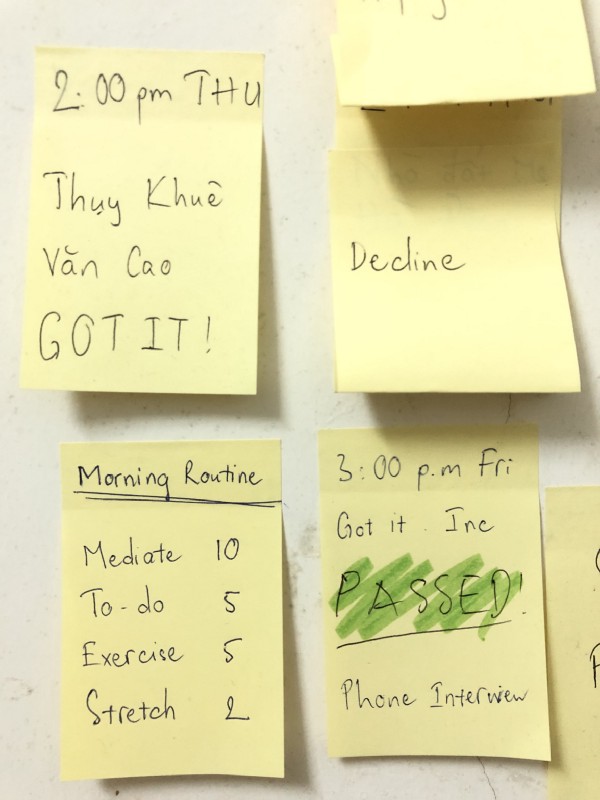 2:00 pm THU
Thụy Khuê
Văn Cao
GOT IT!
Decline
Morning Routine
Mediate 10
To-do 5
Exercise 5
Stretch 2
3:00 p.m Fri
Got it. Inc
PASSED!
Phone Interview